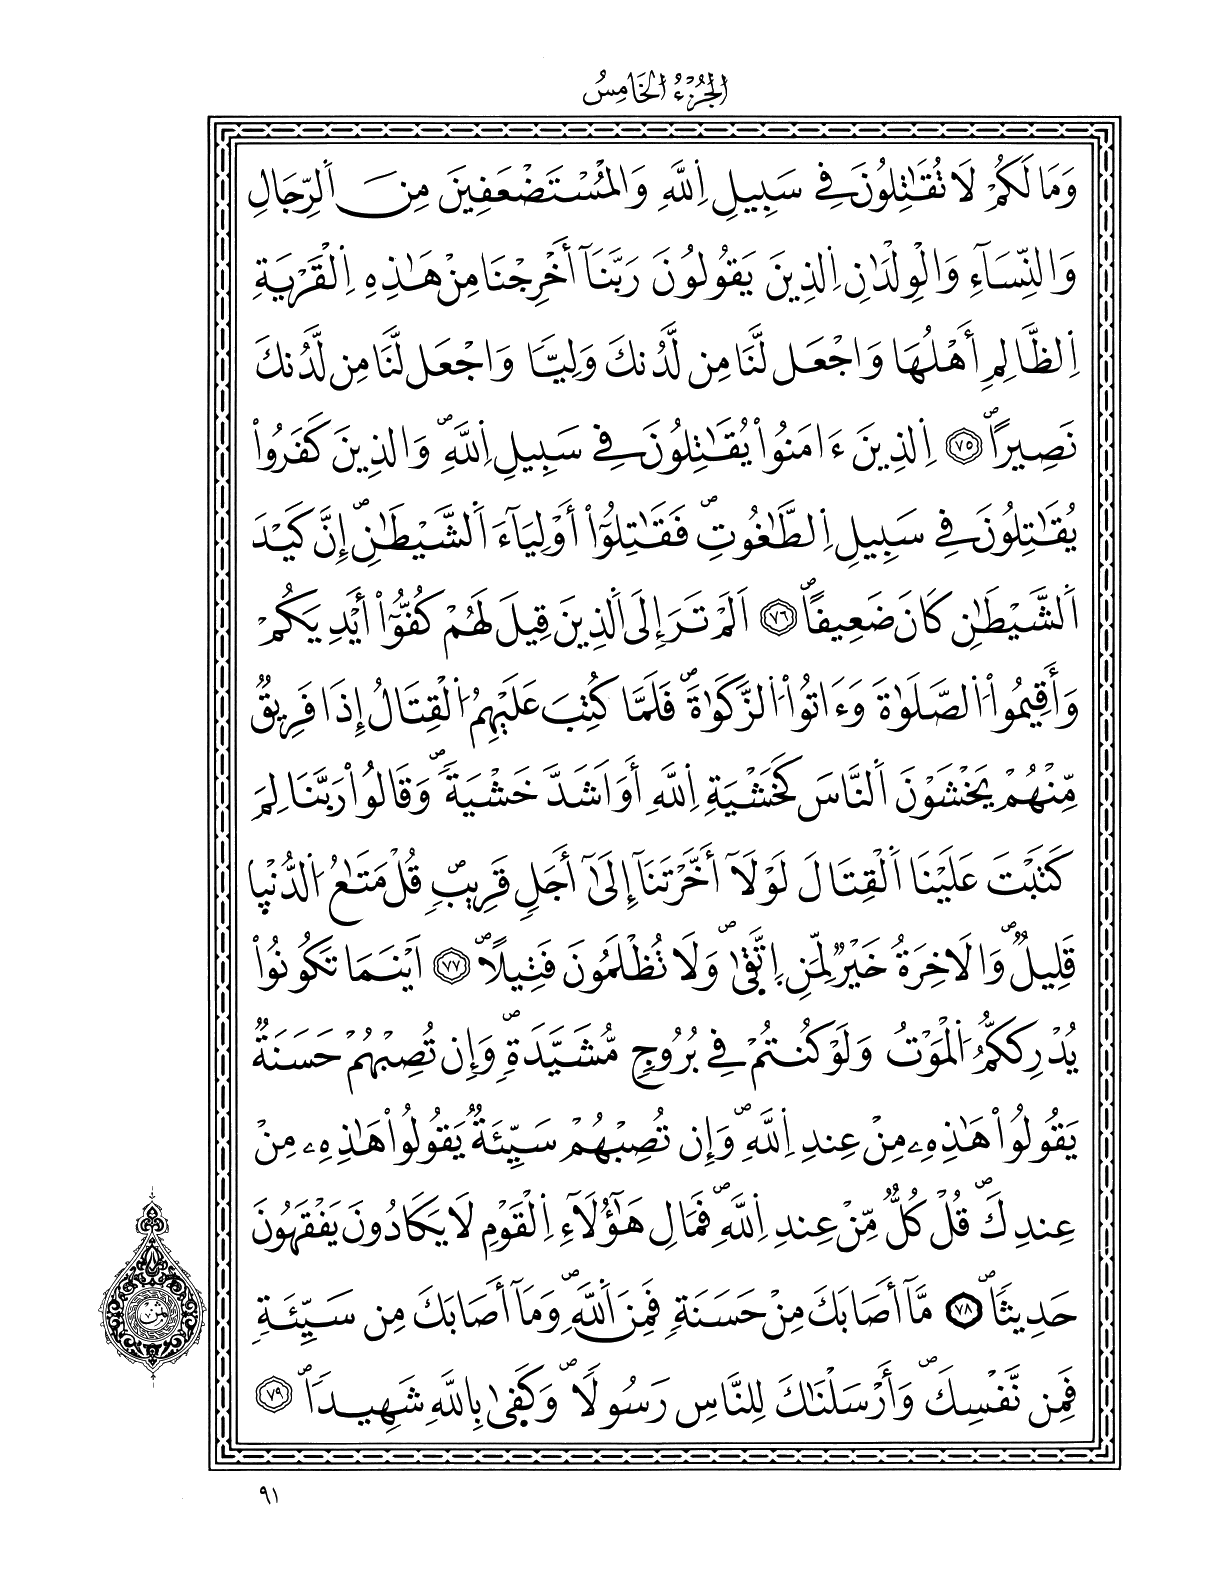 الجُزْءُ الخَامِسُ
وَمَا لَكُمْ لَا تُقَٰتِلُونَ فِے سَبِيلِ اِ۬للَّهِ وَالْمُسْتَضْعَفِينَ مِنَ اَ۬لرِّجَالِ
وَالنِّسَآءِ وَالْوِلْدَٰنِ اِ۬لذِينَ يَقُولُونَ رَبَّنَآ أَخْرِجْنَا مِنْ هَٰذِهِ اِ۬لْقَرْيَةِ
اِ۬لظَّالِمِ أَهْلُهَا وَاجْعَل لَّنَا مِن لَّدُنكَ وَلِيّاً وَاجْعَل لَّنَا مِن لَّدُنكَ
نَصِيراًۖ ٧٥ اِ۬لذِينَ ءَامَنُواْ يُقَٰتِلُونَ فِے سَبِيلِ اِ۬للَّهِۖ وَالذِينَ كَفَرُواْ
يُقَٰتِلُونَ فِے سَبِيلِ اِ۬لطَّٰغُوتِۖ فَقَٰتِلُوٓاْ أَوْلِيَآءَ اَ۬لشَّيْطَٰنِۖ إِنَّ كَيْدَ
اَ۬لشَّيْطَٰنِ كَانَ ضَعِيفاًۖ ٧٦ اَلَمْ تَرَ إِلَى اَ۬لذِينَ قِيلَ لَهُمْ كُفُّوٓاْ أَيْدِيَكُمْ
وَأَقِيمُواْ اُ۬لصَّلَوٰةَ وَءَاتُواْ اُ۬لزَّكَوٰةَۖ فَلَمَّا كُتِبَ عَلَيْهِمُ اُ۬لْقِتَالُ إِذَا فَرِيقٌ
مِّنْهُمْ يَخْشَوْنَ اَ۬لنَّاسَ كَخَشْيَةِ اِ۬للَّهِ أَوَ اَشَدَّ خَشْيَةًۖ وَقَالُواْ رَبَّنَا لِمَ
كَتَبْتَ عَلَيْنَا اَ۬لْقِتَالَ لَوْلَآ أَخَّرْتَنَآ إِلَىٰٓ أَجَلٍ قَرِيبٍۖ قُلْ مَتَٰعُ اُ۬لدُّنْيَا
قَلِيلٌۖ وَالَاخِرَةُ خَيْرٌ لِّمَنِ اِ۪تَّق۪ىٰۖ وَلَا تُظْلَمُونَ فَتِيلاًۖ ٧٧ اَيْنَمَا تَكُونُواْ
يُدْرِككُّمُ اُ۬لْمَوْتُ وَلَوْ كُنتُمْ فِے بُرُوجٍ مُّشَيَّدَةٍۖ وَإِن تُصِبْهُمْ حَسَنَةٌ
يَقُولُواْ هَٰذِهِۦ مِنْ عِندِ اِ۬للَّهِۖ وَإِن تُصِبْهُمْ سَيِّئَةٌ يَقُولُواْ هَٰذِهِۦ مِنْ
عِندِكَۖ قُلْ كُلٌّ مِّنْ عِندِ اِ۬للَّهِۖ فَمَالِ هَٰٓؤُلَآءِ اِ۬لْقَوْمِ لَا يَكَادُونَ يَفْقَهُونَ
حَدِيثاًۖ ٧٨ مَّآ أَصَابَكَ مِنْ حَسَنَةٍ فَمِنَ اَ۬للَّهِۖ وَمَآ أَصَابَكَ مِن سَيِّئَةٍ
فَمِن نَّفْسِكَۖ وَأَرْسَلْنَٰكَ لِلنَّاسِ رَسُولاًۖ وَكَف۪ىٰ بِاللَّهِ شَهِيداًۖ ٧٩
ثمن
٩١